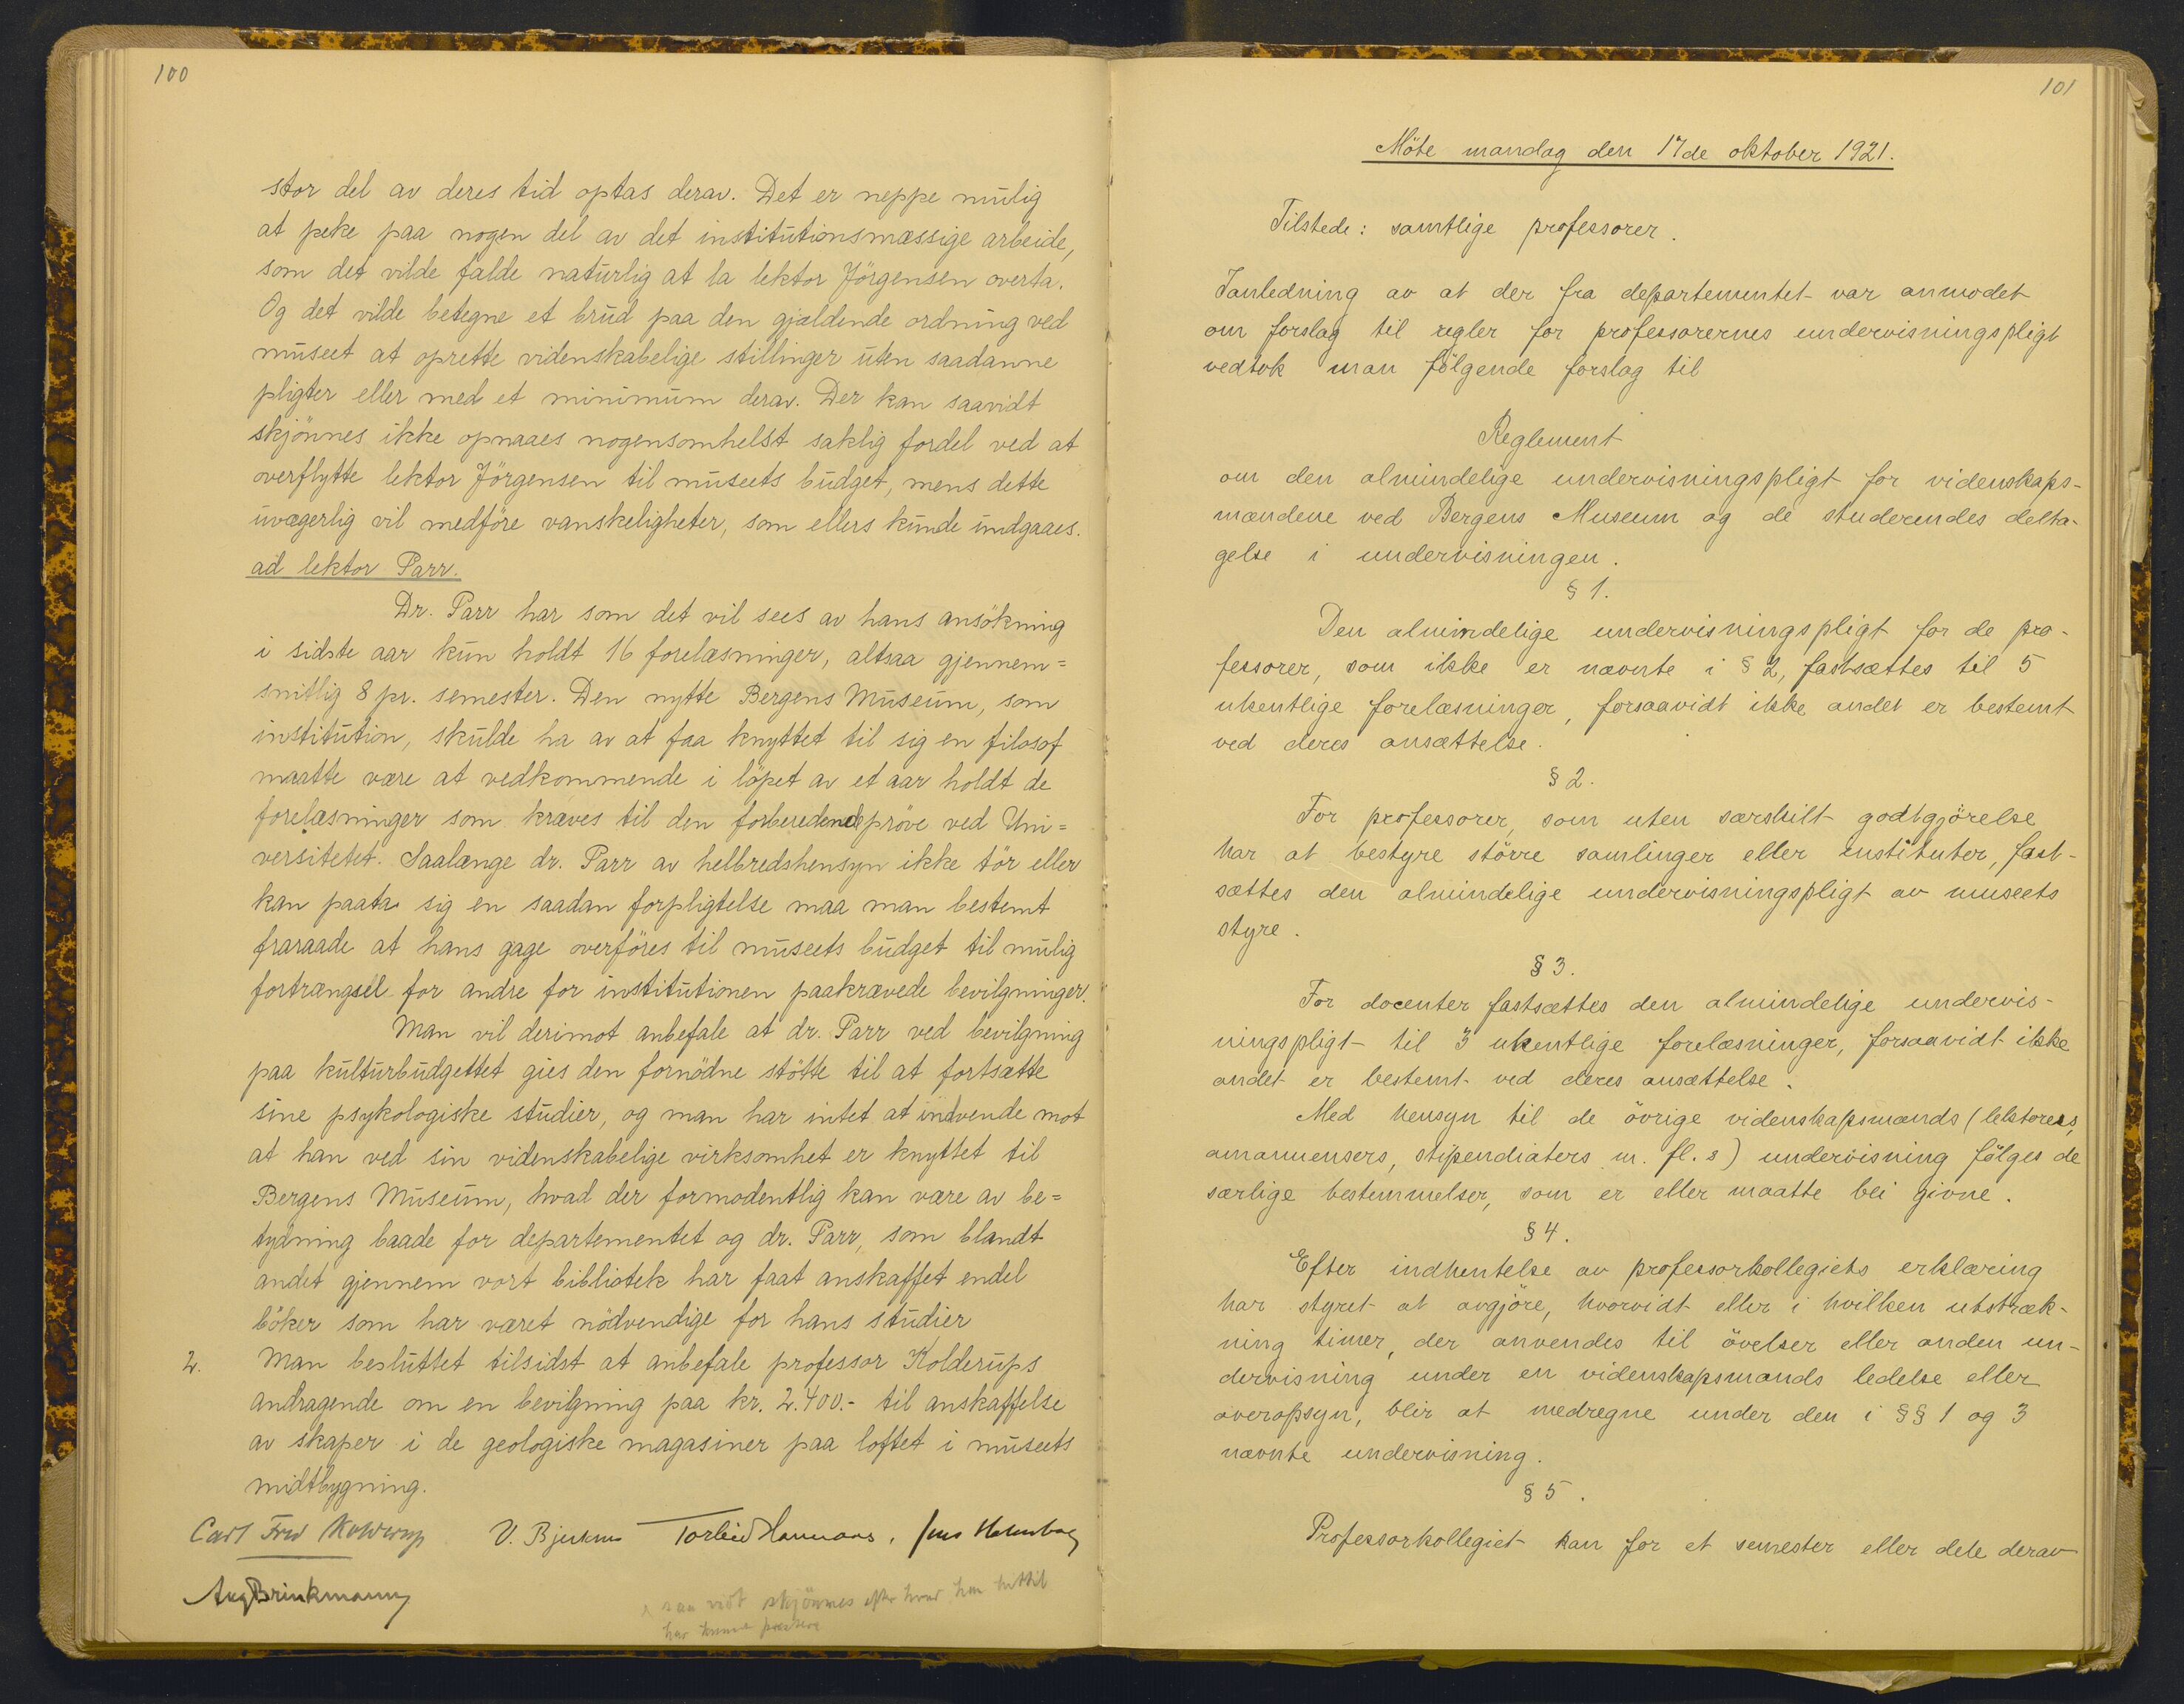 100
stor del av deres tid optas derav. Det er neppe mulig
at peke paa nogen del av det institutionsmæssige arbeide,
som det vilde falde naturlig at la lektor Jörgensen overta.
Og det vilde betegne et brud paa den gjældende ordning ved
museet at oprette videnskabelige stillinger uten saadanne
pligter eller med et minimum derav. Der kan saavidt
skjönnes ikke opnaaes nogensomhelst saklig fordel ved at
overflytte lektor Jörgensen til museets budget, mens dette
uvægerlig vil medföre vanskeligheter, som ellers kunde undgaaes.
ad lektor Parr.
Dr. Parr har som det vil sees av hans ansökning
i sidste aar kun holdt 16 forelæsninger, altsaa gjennem=
snitlig 8 pr. semester. Den nytte Bergens Museum, som
institution, skulde ha av at faa knyttet til sig en filosof
maatte være at vedkommende i löpet av et aar holdt de
forelæsninger som kræves til den forberedende pröve ved Uni=
versitetet. Saalænge dr. Parr av helbredshensyn ikke tör eller
kan paata sig en saadan forpligtelse maa man bestemt
fraraade at hans gage overföres til museets budget til mulig
fortrængsel for andre for institutionen paakrævede bevilgninger.
Man vil derimot anbefale at dr. Parr ved bevilgning
paa kulturbudgettet gies den fornödne stötte til at fortsætte
sine psykologiske studier, og man har intet at indvende mot
at han ved sin videnskabelige virksomhet er knyttet til
Bergens Museum, hvad der formodentlig kan være av be=
tydning baade for departementet og dr. Parr, som blandt
andet gjennem vort bibliotek har faat anskaffet endel
böker som har været nödvendige for hans studier
2. Man besluttet tilsidst at anbefale professor Kolderups
andragende om en bevilgning paa kr. 2.400.- til anskaffelse
av skaper i de geologiske magasiner paa loftet i museets
midtbygning.
Carl Fred Kolderup V. Bjerknes Torleiv Hannaas. Jens Holmboe
Aug Brinkmann
saa vidt skjönnes efter hvad han hittil
har kunnet præstere
101
Möte mandag den 17de oktober 1921.
Tilstede: samtlige professorer.
I anledning av at der fra departementet var anmodet
om forslag til regler for professorernes undervisningspligt
vedtok man fölgende forslag til
Reglement
om den almindelige undervisningspligt for videnskaps-
mændene ved Bergens Museum og de studerendes delta-
gelse i undervisningen.
§ 1.
Den almindelige undervisningspligt for de pro-
fessorer, som ikke er nævnte i § 2, fastsættes til 5
ukentlige forelæsninger, forsaavidt ikke andet er bestemt
ved deres ansættelse.
§ 2.
For professorer, som uten særskilt godtgjörelse
har at bestyre större samlinger eller instituter, fast-
sættes den almindelige undervisningspligt av museets
styre.
§ 3.
For docenter fastsættes den almindelige undervis-
ningspligt til 3 ukentlige forelæsninger, forsaavidt ikke
andet er bestemt ved deres ansættelse.
Med hensyn til de övrige videnskapsmænds (lektorers,
amanuensers, stipendiaters m. fl.s) undervisning fölges de
særlige bestemmelser, som er eller maatte bli givne.
§ 4.
Efter indhentelse av professorkollegiets erklæring
har styret at avgjöre, hvorvidt eller i hvilken utstræk-
ning timer, der anvendes til övelser eller anden un-
dervisning under en videnskapsmands ledelse eller
overopsyn, blir at medregne under den i §§ 1 og 3
nævnte undervisning.
§ 5.
Professorkollegiet kan for et semester eller dele derav